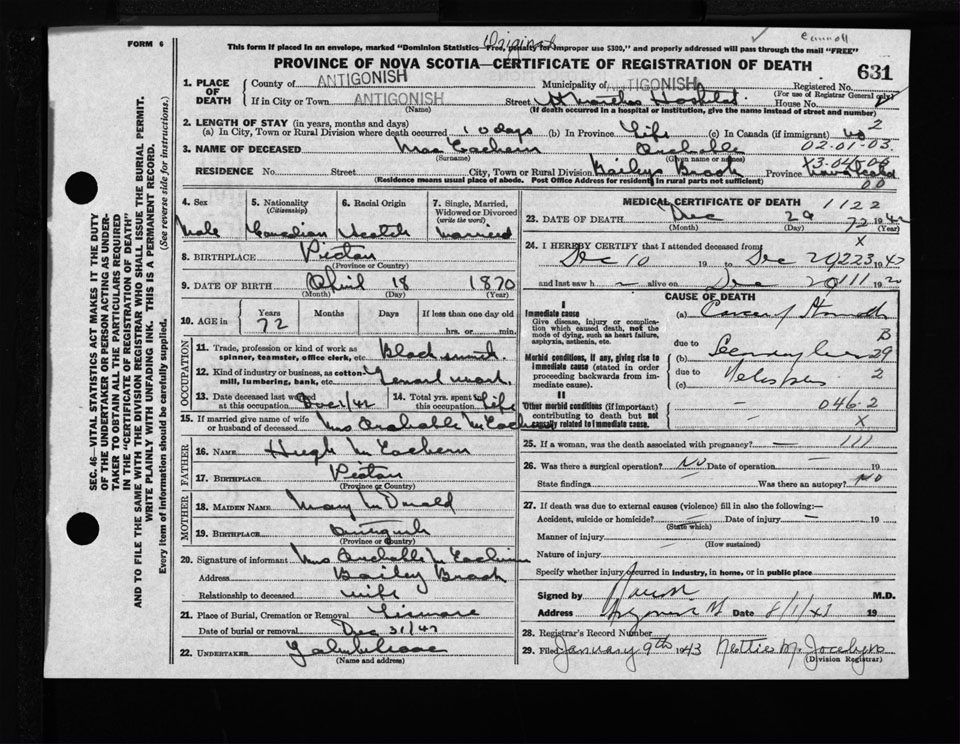 FORM 6
Original
This form if placed in an envelope, marked "Dominion Statistics—Free, penalty for improper use $300," and properly addressed will pass through the mail "FREE"
PROVINCE OF NOVA SCOTIA—CERTIFICATE OF REGISTRATION OF DEATH
631
1. PLACE OF DEATH
County of ANTIGONISH Municipality of ANTIGONISH Registered No.
(For use of Registrar General only)
If in City or Town ANTIGONISH Street St Marthas Hospital House No.
(Name) (If death occurred in a hospital or institution, give the name instead of street and number)
2. LENGTH OF STAY (in years, months and days)
(a) In City, Town or Rural Division where death occurred 10 days (b) In Province Life (c) In Canada (if immigrant) no
2
3. NAME OF DECEASED Mac Eachern Archable 02-01-03
(Surname) (Given name or names)
X3-046-06
RESIDENCE No. Street City, Town or Rural Division Baileys Brook Province Nova Scotia
(Residence means usual place of abode. Post Office Address for residents in rural parts not sufficient)
00
4. Sex Male
5. Nationality (Citizenship) Canadian
6. Racial Origin Scotch
7. Single, Married, Widowed or Divorced (write the word) Married
8. BIRTHPLACE Pictou
(Province or Country)
9. DATE OF BIRTH April 18 1870
(Month) (Day) (Year)
10. AGE in Years Months Days If less than one day old
72 hrs. or min.
OCCUPATION
11. Trade, profession or kind of work as spinner, teamster, office clerk, etc. Blacksmith
12. Kind of industry or business, as cotton-mill, lumbering, bank, etc. General work.
13. Date deceased last worked at this occupation Dec 1/42
14. Total yrs. spent in this occupation Life
15. If married give name of wife or husband of deceased Mrs Archable McEachern
FATHER
16. NAME Hugh McEachern
17. BIRTHPLACE Pictou
(Province or Country)
MOTHER
18. MAIDEN NAME Mary McDonald
19. BIRTHPLACE Antigonish
(Province or Country)
20. Signature of informant Mrs Archable McEachern
Address Bailey Brook
Relationship to deceased wife
21. Place of Burial, Cremation or Removal Lismore
Date of burial or removal Dec 31/42
22. UNDERTAKER
(Name and address)
MEDICAL CERTIFICATE OF DEATH 1122
23. DATE OF DEATH Dec 29 72 1942
(Month) (Day) (Year)
X
24. I HEREBY CERTIFY that I attended deceased from
Dec 10 19 to Dec 29 223 1942
and last saw h alive on Dec 29 111 19
CAUSE OF DEATH
I
Immediate cause
Give disease, injury or complication which caused death, not the mode of dying, such as heart failure, asphyxia, asthenia, etc.
(a) Cancer of Stomach
B
due to
(b) Secondary Liver 29
Morbid conditions, if any, giving rise to immediate cause (stated in order proceeding backwards from immediate cause).
due to 2
(c)
II
Other morbid conditions (if important) contributing to death but not causally related to immediate cause.
046-2
X
25. If a woman, was the death associated with pregnancy? — 111
26. Was there a surgical operation? NO Date of operation — 19
State findings Was there an autopsy? NO
27. If death was due to external causes (violence) fill in also the following:—
Accident, suicide or homicide? — Date of injury — 19
(State which)
Manner of injury
(How sustained)
Nature of injury
Specify whether injury occurred in industry, in home, or in public place
Signed by M.D.
Address Date 8/1/43 19
28. Registrar's Record Number
29. Filed January 9th 1943 Nettie M. Jocelyn
(Division Registrar)
SEC. 46—VITAL STATISTICS ACT MAKES IT THE DUTY OF THE UNDERTAKER OR PERSON ACTING AS UNDERTAKER TO OBTAIN ALL THE PARTICULARS REQUIRED IN THE "CERTIFICATE OF REGISTRATION OF DEATH"
AND TO FILE THE SAME WITH THE DIVISION REGISTRAR WHO SHALL ISSUE THE BURIAL PERMIT.
WRITE PLAINLY WITH UNFADING INK. THIS IS A PERMANENT RECORD.
Every item of information should be carefully supplied. (See reverse side for instructions.)